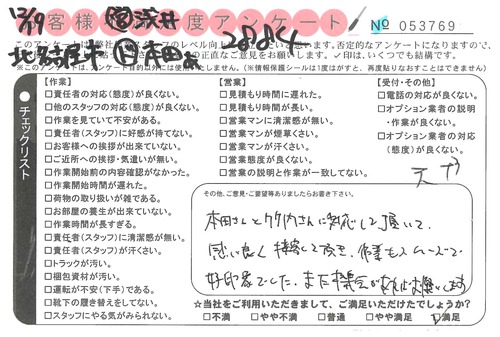 12/19
お客様満足度アンケート
№ 053769
浅井
288

※このアンケートは、アンケート目的以外には使用いたしません。(※情報保護シール)は1度はがすと、再度貼りなおすことはできません)
チェックリスト
【作業】
□責任者の対応(態度)が良くない。
□他のスタッフの対応(態度)が良くない。
□作業を見ていて不安がある。
□責任者(スタッフ)に好感が持てない。
□お客様への挨拶が出来ていない。
□ご近所への挨拶・気遣いが無い。
□作業開始前の内容確認がなかった。
□作業開始時間が遅れた。
□荷物の取り扱いが雑である。
□お部屋の養生が出来ていない。
□作業時間が長すぎる。
□責任者(スタッフ)に清潔感が無い。
□責任者(スタッフ)が汗くさい。
□トラックが汚い。
□梱包資材が汚い。
□運転が不安(下手)である。
□靴下の履き替えをしてない。
□スタッフにやる気がみられない。
【営業】
□見積もり時間に遅れた。
□見積もり時間が長い。
□営業マンに清潔感が無い。
□営業マンが煙草くさい。
□営業マンが汗くさい。
□営業態度が良くない。
□営業の説明と作業が一致してない。
【受付・その他】
□電話の対応が良くない。
□オプション業者の説明
・作業が良くない。
□オプション業者の対応
(態度)が良くない。
その他、ご意見・ご要望等ありましたらお書き下さい。
本田さんと竹内さんに対応して頂いて、
感じ良く接客して頂き、作業もスムーズで
好印象でした。また機会があればお願いします
☆当社をご利用いただきまして、ご満足いただけたでしょうか?
□不満 □やや不満 □普通 □やや満足 ☑満足